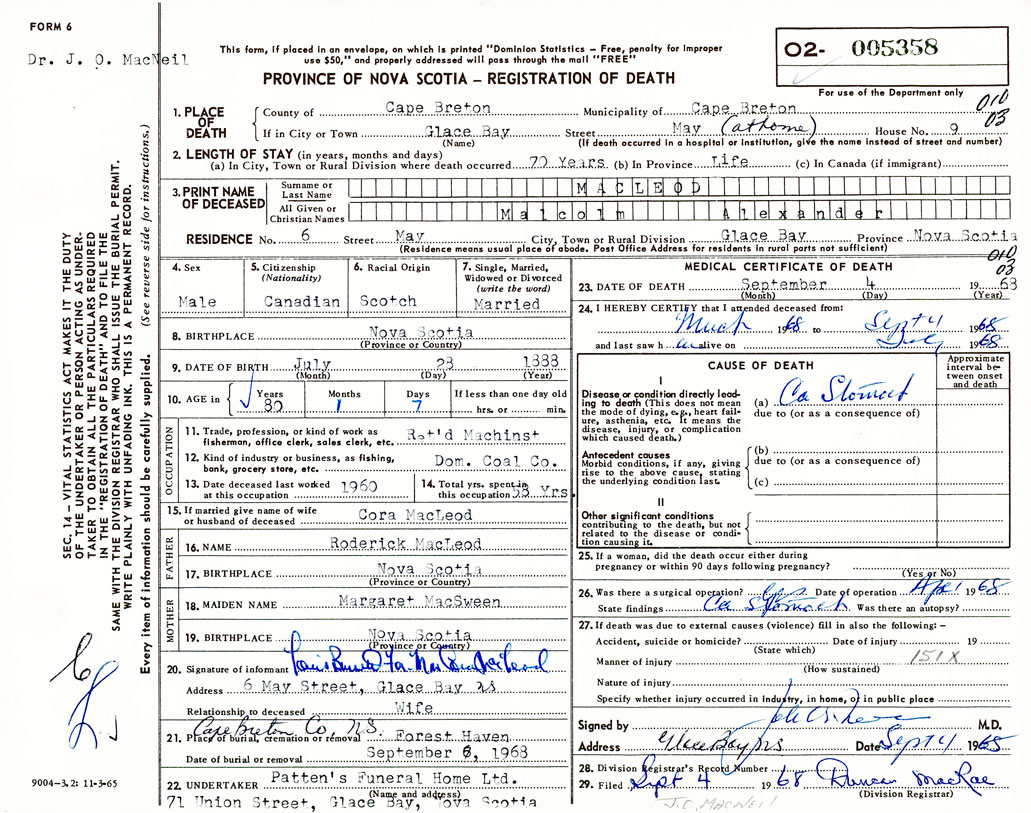 FORM 6
Dr. J. O. MacNeil
This form, if placed in an envelope, on which is printed "Dominion Statistics – Free, penalty for improper
use $50," and properly addressed will pass through the mail "FREE"
PROVINCE OF NOVA SCOTIA – REGISTRATION OF DEATH
O2- 005358
For use of the Department only
010
03
1. PLACE OF DEATH
County of Cape Breton Municipality of Cape Breton
If in City or Town Glace Bay Street May (at home) House No. 9
(Name) (If death occurred in a hospital or institution, give the name instead of street and number)
2. LENGTH OF STAY (in years, months and days)
(a) In City, Town or Rural Division where death occurred 79 Years (b) In Province Life (c) In Canada (if immigrant)
3. PRINT NAME OF DECEASED
Surname or Last Name MACLEOD
All Given or Christian Names Malcolm Alexander
RESIDENCE No. 6 Street May City, Town or Rural Division Glace Bay Province Nova Scotia
(Residence means usual place of abode. Post Office Address for residents in rural parts not sufficient)
010
03
4. Sex
Male
5. Citizenship
(Nationality)
Canadian
6. Racial Origin
Scotch
7. Single, Married,
Widowed or Divorced
(write the word)
Married
8. BIRTHPLACE Nova Scotia
(Province or Country)
9. DATE OF BIRTH July 28 1888
(Month) (Day) (Year)
10. AGE in Years Months Days If less than one day old
80 1 7 hrs. or min.
OCCUPATION
11. Trade, profession, or kind of work as
fisherman, office clerk, sales clerk, etc. Ret'd Machinst
12. Kind of industry or business, as fishing,
bank, grocery store, etc. Dom. Coal Co.
13. Date deceased last worked
at this occupation 1960
14. Total yrs. spent in
this occupation 58 Yrs
15. If married give name of wife
or husband of deceased Cora MacLeod
FATHER
16. NAME Roderick MacLeod
17. BIRTHPLACE Nova Scotia
(Province or Country)
MOTHER
18. MAIDEN NAME Margaret MacSween
19. BIRTHPLACE Nova Scotia
(Province or Country)
20. Signature of informant
Address 6 May Street, Glace Bay NS
Relationship to deceased Wife
Cape Breton Co, N.S.
21. Place of burial, cremation or removal Forest Haven
Date of burial or removal September 6, 1968
22. UNDERTAKER Patten's Funeral Home Ltd.
(Name and address)
71 Union Street, Glace Bay, Nova Scotia
MEDICAL CERTIFICATE OF DEATH
23. DATE OF DEATH September 4 19 68
(Month) (Day) (Year)
24. I HEREBY CERTIFY that I attended deceased from:
March 1968 to Sept 4 1968
and last saw h alive on July 1968
CAUSE OF DEATH
Approximate interval between onset and death
I
Disease or condition directly leading to death (This does not mean
the mode of dying, e.g., heart failure, asthenia, etc. It means the
disease, injury, or complication
which caused death.)
(a) Ca Stomach
due to (or as a consequence of)
Antecedent causes
Morbid conditions, if any, giving
rise to the above cause, stating
the underlying condition last.
(b)
due to (or as a consequence of)
(c)
II
Other significant conditions
contributing to the death, but not
related to the disease or condition causing it.
25. If a woman, did the death occur either during
pregnancy or within 90 days following pregnancy?
(Yes or No)
26. Was there a surgical operation? yes Date of operation Apr 1968
State findings Ca Stomach Was there an autopsy?
27. If death was due to external causes (violence) fill in also the following: –
Accident, suicide or homicide? Date of injury 19
(State which)
Manner of injury 151X
(How sustained)
Nature of injury
Specify whether injury occurred in industry, in home, or in public place
Signed by M.D.
Address Glace Bay NS Date Sept 4 1968
28. Division Registrar's Record Number
29. Filed Sept 4 19 68 Duncan MacRae
(Division Registrar)
J.O. MACNEIL
SEC. 14 – VITAL STATISTICS ACT MAKES IT THE DUTY
OF THE UNDERTAKER OR PERSON ACTING AS UNDER-
TAKER TO OBTAIN ALL THE PARTICULARS REQUIRED
IN THE "REGISTRATION OF DEATH" AND TO FILE THE
SAME WITH THE DIVISION REGISTRAR WHO SHALL ISSUE THE BURIAL PERMIT.
WRITE PLAINLY WITH UNFADING INK. THIS IS A PERMANENT RECORD.
Every item of information should be carefully supplied. (See reverse side for instructions.)
9004-3.2: 11-3-65